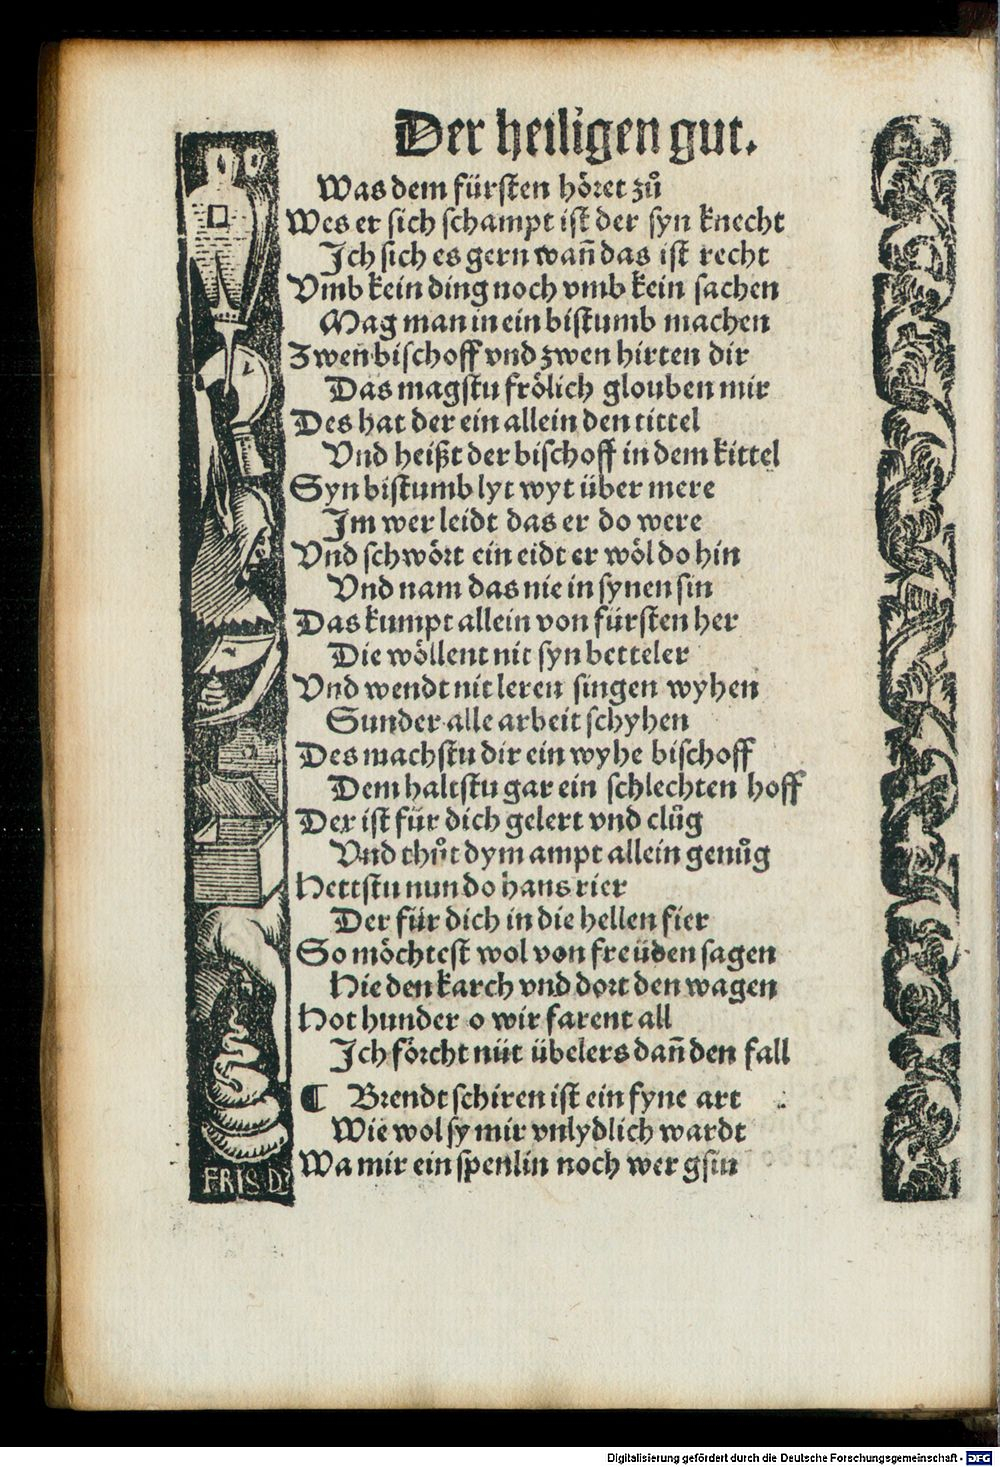 Der heiligen gut.
Was dem fürsten höret zů
Wes er sich schampt ist der syn knecht
Ich sich es gern wañ das ist recht
Vmb kein ding noch vmb kein sachen
Mag man in ein bistumb machen
Zwen bischoff vnd zwen hirten dir
Das magstu frölich glouben mir
Des hat der ein allein den tittel
Vnd heißt der bischoff in dem kittel
Syn bistumb lyt wyt über mere
Im wer leidt das er do were
Vnd schwört ein eidt er wöl do hin
Vnd nam das nie in synen sin
Das kumpt allein von fürsten her
Die wöllent nit syn betteler
Vnd wendt nit leren singen wyhen
Sunder alle arbeit schyhen
Des machstu dir ein wyhe bischoff
Dem haltstu gar ein schlechten hoff
Der ist für dich gelert vnd clůg
Vnd thůt dym ampt allein genůg
Hettstu nun do hans rier
Der für dich in die hellen fier
So möchtest wol von freüden sagen
Hie den karch vnd dort den wagen
Hot hunder o wir farent all
Ich förcht nüt übelers dañ den fall
¶ Brendt schiren ist ein fyne art
Wie wol sy mir vnlydlich wardt
Wa mir ein spenlin noch wer gsin
FRIS D
Digitalisierung gefördert durch die Deutsche Forschungsgemeinschaft - DFG